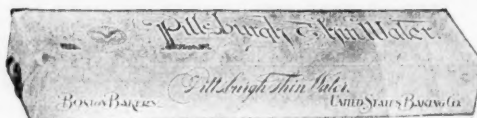 Pittsburgh Thin Water.
Pittsburgh Thin Water.
BOSTON BAKERS. UNITED STATES BAKING CO.